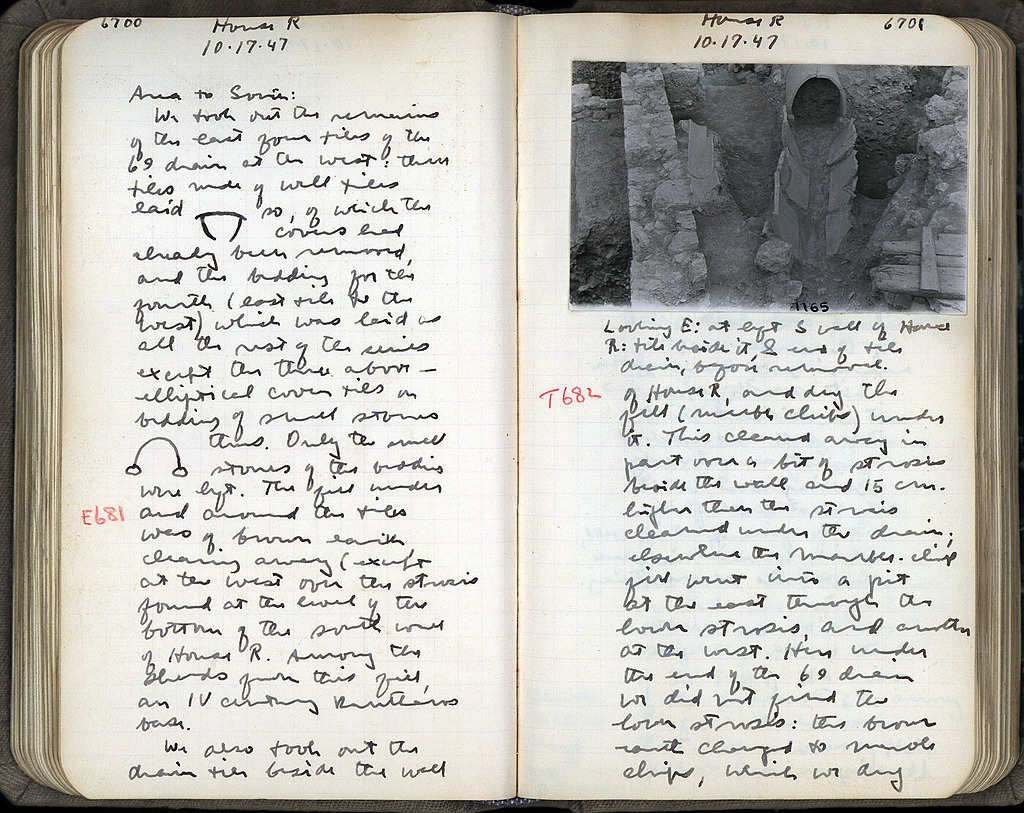 6700
House R
10.17.47
Area to South:
We took out the remains
of the east four tiles of the
69 drain at the west: three
tiles made of well tiles
laid so, of which the
covers had
already been removed,
and the bedding for the
fourth (east tile to the
West) which was laid as
all the rest of the series
except the three above –
elliptical cover tiles on
bedding of small stones
thus. Only the small
stones of the bedding
were left. The fill under
E681
and around the tiles
was of brown earth,
clearing away (except
at the west over the strosis
found at the level of the
bottom of the south wall
of House R. Among the
sherds from this fill,
an IV century Kantharos
base.
We also took out the
drain tile beside the wall
6701
House R
10.17.47
1165
Looking E: at left S wall of House
R: tile beside it, & end of tile
drain, before removal.
T682
of House R, and dug the
fill (marble chips) under
it. This cleared away in
part over a bit of strosis
beside the wall and 15 cm.
higher than the strosis
cleared under the drain;
elsewhere the marble-chip
fill went into a pit
at the east through the
lower strosis, and another
at the west. Here under
the end of the 69 drain
we did not find the
lower strosis: the brown
earth changed to marble
chips, which we dug